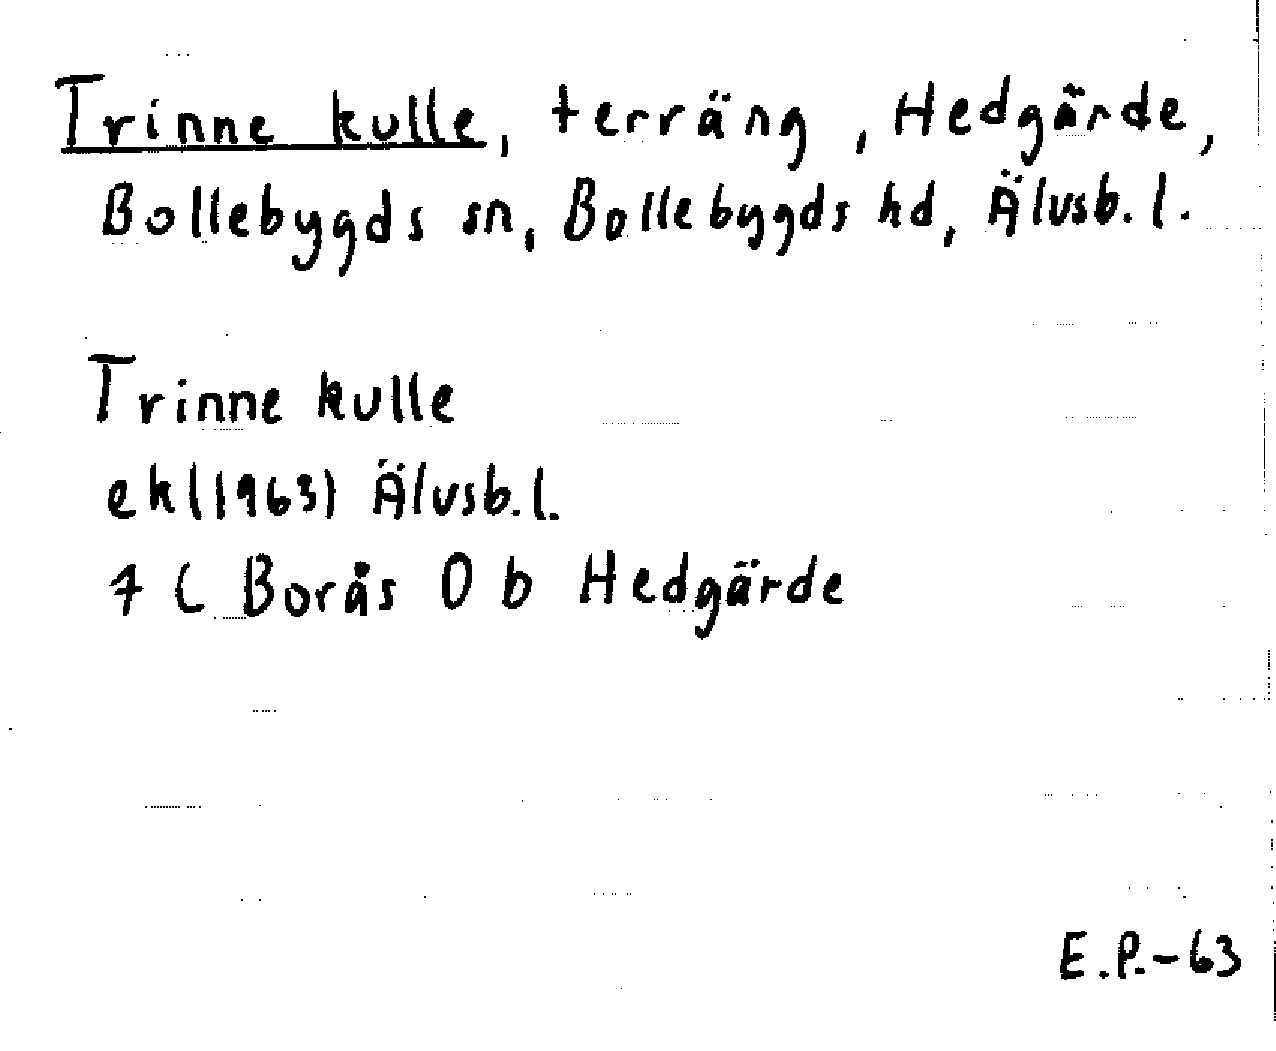 Trinne kulle, terräng, Hedgärde,
Bollebygds sn, Bollebygds hd, Älvsb. l.
Trinne kulle
ek (1963) Älvsb. l.
7 C Borås 0 b Hedgärde
E.P.-63